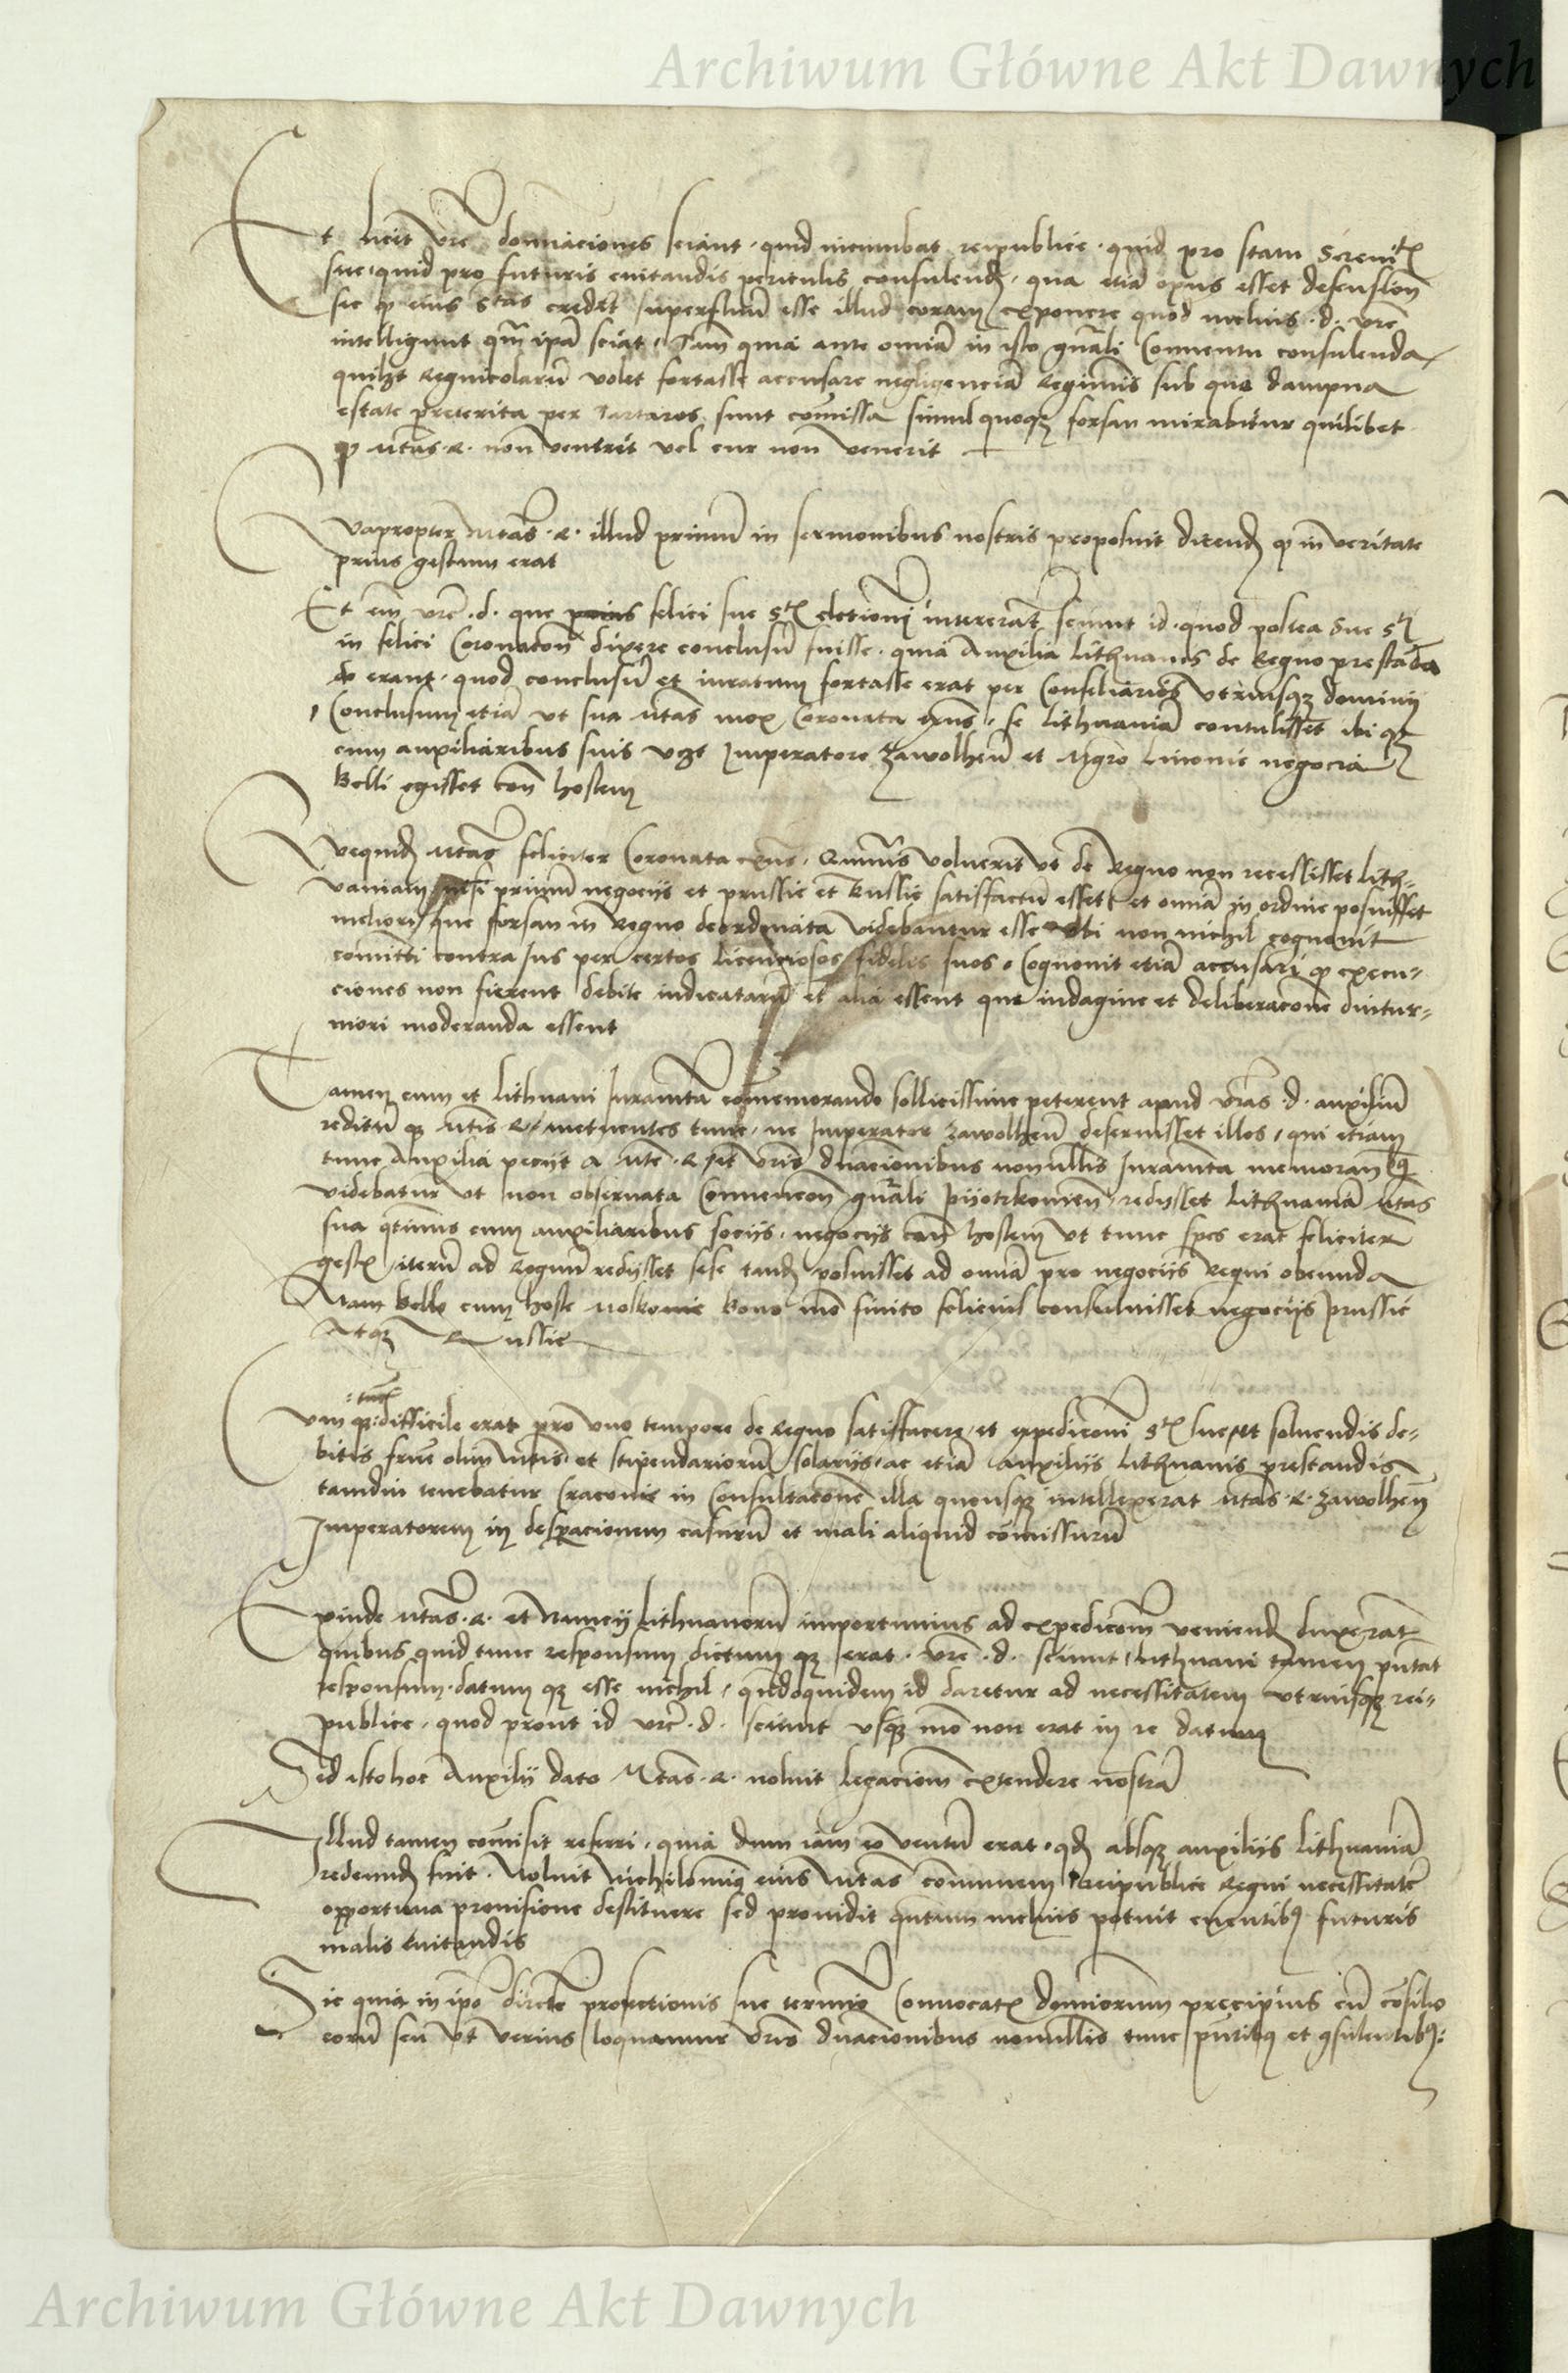 Archiwum Główne Akt Dawnych
Et licet vre dominaciones sciant, quid incumbat reipublice, quid pro statu Serenitis
sue, quid pro futuris evitandis periculis consulend, qua etiã opus esset defension
sic q eius Stas credit superfluũ esse illud coram exponere quod melius .d. vre
intelligunt qm ipa sciat, Tam quia ante omnia in isto gnali Conventu consulenda
quilzt Regnicolarũ volet fortasse accusare negligenciã Regiminis sub quo dampna
estate preterita per Tartaros sunt comissa simul quoqz forsan mirabitur quilibet
q Mtas .R. non venerit vel cur non venerit
Quapropter Mtas .R. illud primũ in sermonibus nostris proposuit dicend q in veritate
prius gestum erat
Et em vre .d. que felici sue Stis electioni intererãt sciunt id quod postea sue Sti
in felici Coronacon dixere conclusũ fuisse, quia Auxilia lithuanis de Regno prestãda
erant, quod conclusũ et iuratum fortasse erat per Consiliarios utriusqz dominii
Conclusum etiã ut sua Mtas mox Coronata exns, se lithuaniã contulisset ibi qz
cum auxiliaribus suis vzt Imperatore Zawolhen et Mgro Livonie negocia
belli egisset con hostem
Quequid Mtas feliciter Coronata exns, Quavis voluerit ut de Regno non recessisset lith-
vaniam nisi primũ negociis et prussie et Russie satisfactũ esset et omniã in ordine posuisset
meliori que forsan in Regno deordinata videbantur esse ubi non nichil cognovit
comitti contra Jus per certos licenciosos fideles suos, Cognovit etiã accusari q execu-
ciones non fierent debite iudicatarũ et alia essent que indagine et deliberacone diutur-
niori moderanda essent
Tamen cum et lithuani Juramta comemorando sollicissime peterent apud vras .d. auxiliũ
reditũ qz Mtis R. metuentes tunc, ne Imperator Zawolhen deseruisset illos, qui etiam
tunc Auxilia peciit a Mte .R. et vris dnacionibus nonullis Juramta memoran
videbatur ut non observata Convencon gnali Pijotrkovien, redysset lithuaniã Mtas
sua cum auxiliaribus sociis, negociis con hostem ut tunc spes erat feliciter
gest iterũ ad Regnũ redysset sese tand voluisset ad omniã pro negociis Regni obeunda
Nam bello cum hoste Moskovie bono mo finito felicius consuluisset negociis prussie
Atqz Russie
tuc
Cum qz difficile erat pro uno tempore de Regno satisfacere, et expedicioni Stis sue, et solvendis de-
bitis frne olim Mtis, et stipendariorũ solariis, ac etiã auxiliis lithuanis prestandis
tamdiu tenebatur Cracovie in Consultacone illa quousqz intellexerat Mtas .R. Zawolhen
Imperatorem in desperacionem casurũ et mali aliquid comissurũ
Exinde Mtas .R. et Nuncii lithuanorũ importunius ad expedicom veniend duxerãt
quibus quid tunc responsum dictum qz erat. vre .d. sciunt, lithuani tamen putãt
responsum datum qz esse nichil, quandoquidem id daretur ad necessitatem utriusqz rei-
publice, quod prout id vre .d. sciunt usqz mo non erat in re datum
Sed isto hoc Auxilii dato Mtas .R. noluit legacionem extendere nostrã
Illud tamen comisit referri, quia dum iam eo ventũ erat, qd absqz auxiliis lithuaniã
redeund fuit. Noluit nichilominus eius Mtas communem reipublice Regni necessitatẽ
opportuna provisione destituere sed providit quntum melius potuit eventibz futuris
malis evitandis
Sic quia in ipo directe profectionis sue termino Convocatis dominorum precipuis cũ consilio
eorũ seu ut verius loquamur vris dnacionibus nonullis tunc pntibus et consulentibz:
Archiwum Główne Akt Dawnych